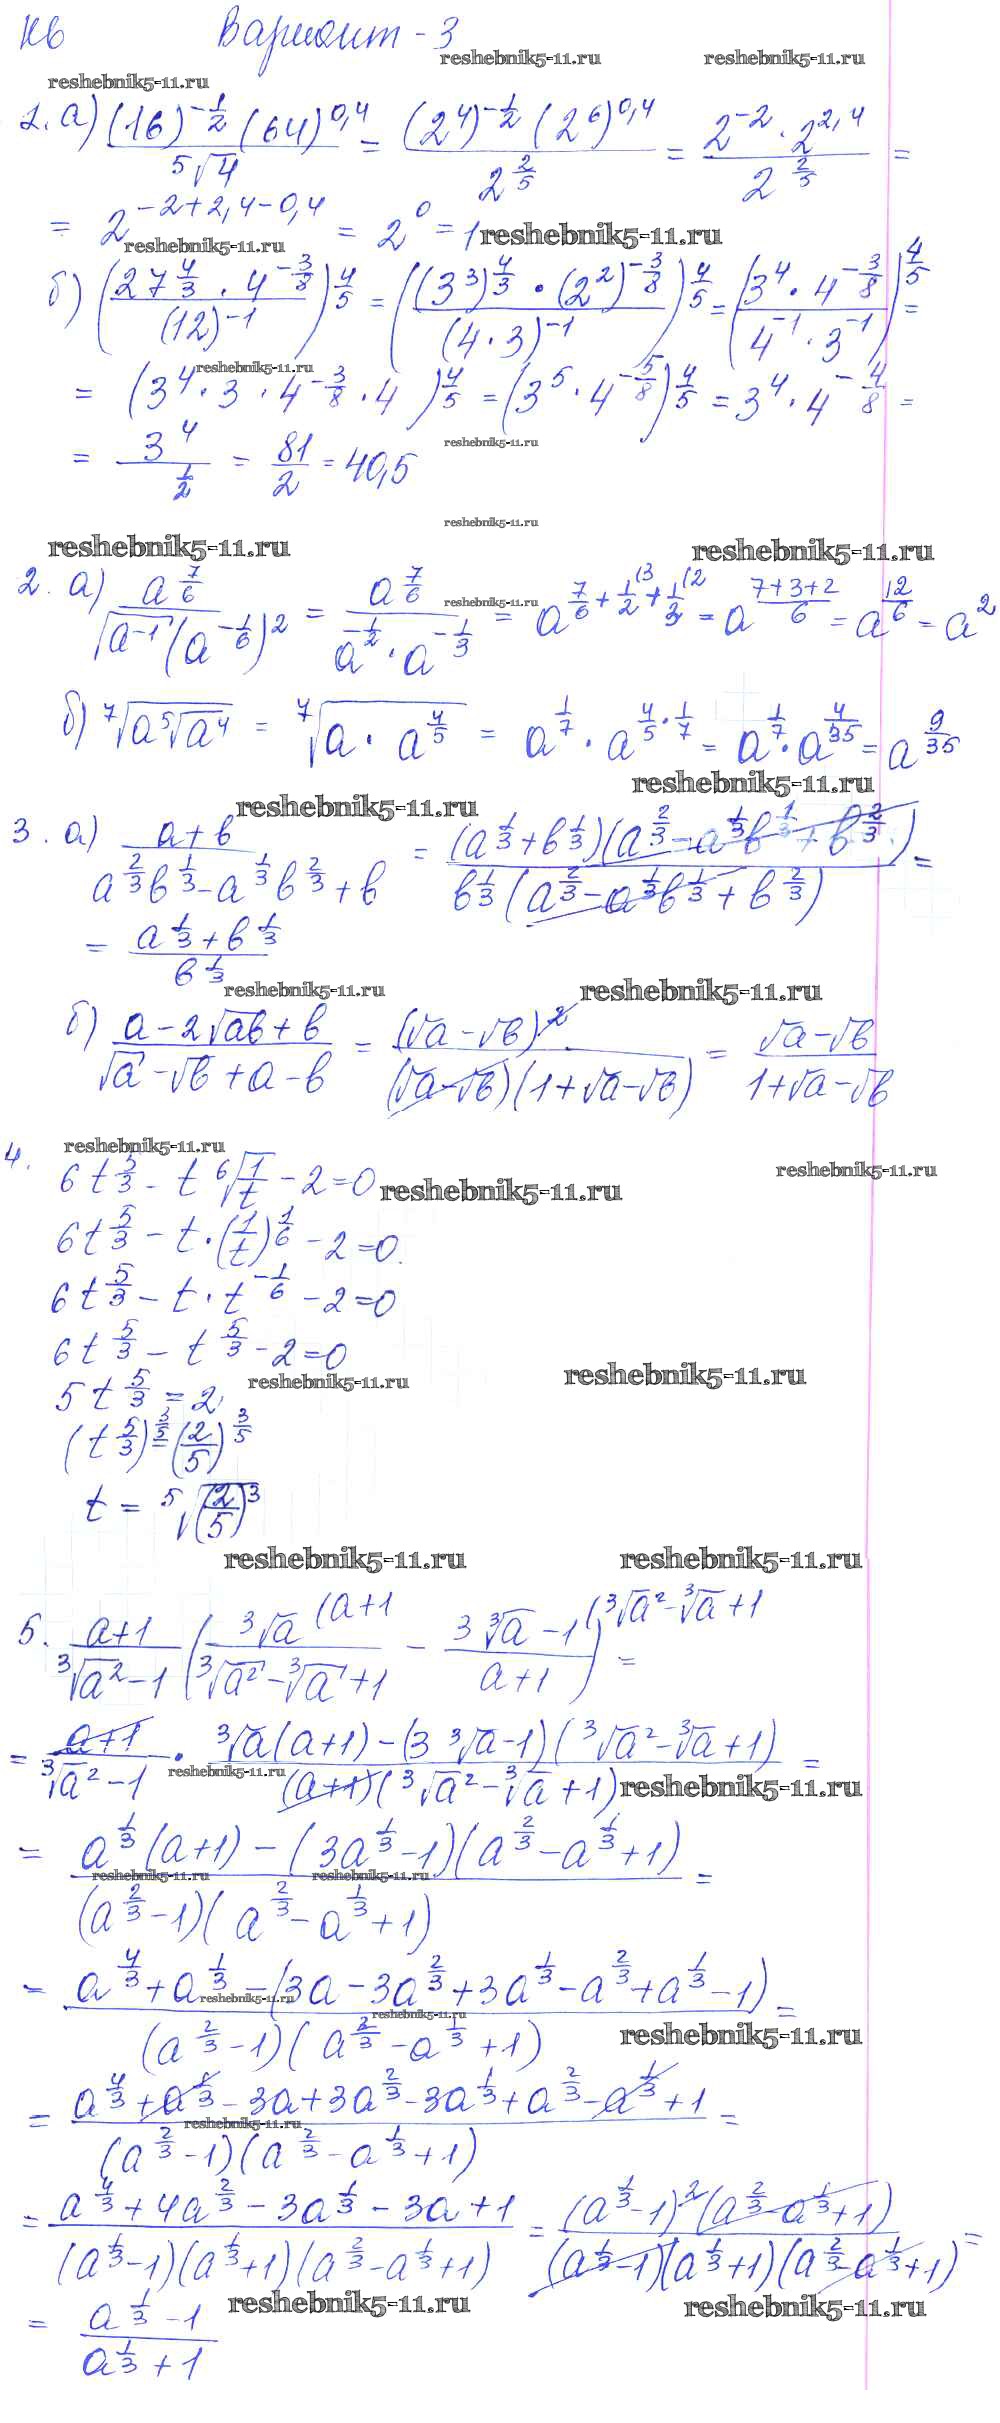 К6 Вариант - 3
reshebnik5-11.ru reshebnik5-11.ru
reshebnik5-11.ru
1. а) ((16)^(-1/2) (64)^(0,4)) / ⁵√4 = ((2⁴)^(-1/2) (2⁶)^(0,4)) / 2^(2/5) = (2^(-2) · 2^(2,4)) / 2^(2/5) =
= 2^(-2+2,4-0,4) = 2⁰ = 1 reshebnik5-11.ru
reshebnik5-11.ru
б) ((27^(4/3) · 4^(-3/8)) / (12)^(-1))^(4/5) = (((3³)^(4/3) · (2²)^(-3/8)) / (4·3)^(-1))^(4/5) = ((3⁴ · 4^(-3/8)) / (4^(-1) · 3^(-1)))^(4/5) =
reshebnik5-11.ru
= (3⁴ · 3 · 4^(-3/8) · 4)^(4/5) = (3⁵ · 4^(-5/8))^(4/5) = 3⁴ · 4^(-4/8) =
reshebnik5-11.ru
= 3⁴ / (1/2) = 81/2 = 40,5
reshebnik5-11.ru
reshebnik5-11.ru reshebnik5-11.ru
2. а) a^(7/6) / (√(a^(-1)) (a^(-1/6))²) = a^(7/6) / (a^(-1/2) · a^(-1/3)) = a^(7/6 + 1/2(3 + 1/3(2) = a^((7+3+2)/6) = a^(12/6) = a²
reshebnik5-11.ru
б) ⁷√(a ⁵√(a⁴)) = ⁷√(a · a^(4/5)) = a^(1/7) · a^(4/5 · 1/7) = a^(1/7) · a^(4/35) = a^(9/35)
reshebnik5-11.ru
reshebnik5-11.ru
3. а) (a+b) / (a^(2/3) b^(1/3) - a^(1/3) b^(2/3) + b) = ((a^(1/3) + b^(1/3))(a^(2/3) - a^(1/3) b^(1/3) + b^(2/3))) / (b^(1/3) (a^(2/3) - a^(1/3) b^(1/3) + b^(2/3))) =
= (a^(1/3) + b^(1/3)) / b^(1/3)
reshebnik5-11.ru reshebnik5-11.ru
б) (a - 2√(ab) + b) / (√a - √b + a - b) = (√a - √b)² / ((√a - √b)(1 + √a - √b)) = (√a - √b) / (1 + √a - √b)
4. reshebnik5-11.ru
reshebnik5-11.ru
6t^(5/3) - t ⁶√(1/t) - 2 = 0 reshebnik5-11.ru
6t^(5/3) - t · (1/t)^(1/6) - 2 = 0
6t^(5/3) - t · t^(-1/6) - 2 = 0
6t^(5/3) - t^(5/3) - 2 = 0
reshebnik5-11.ru
5t^(5/3) = 2 reshebnik5-11.ru
(t^(5/3))^(3/5) = (2/5)^(3/5)
t = ⁵√((2/5)³)
reshebnik5-11.ru reshebnik5-11.ru
5. (a+1) / (³√a² - 1) (³√a (a+1 / (³√a² - ³√a + 1) - (3 ³√a - 1) / (a+1)) (³√a² - ³√a + 1 =
= (a+1) / (³√a² - 1) · (³√a(a+1) - (3 ³√a - 1)(³√a² - ³√a + 1)) / ((a+1)(³√a² - ³√a + 1)) =
reshebnik5-11.ru reshebnik5-11.ru
= (a^(1/3)(a+1) - (3a^(1/3) - 1)(a^(2/3) - a^(1/3) + 1)) / ((a^(2/3) - 1)(a^(2/3) - a^(1/3) + 1)) =
reshebnik5-11.ru reshebnik5-11.ru
= (a^(4/3) + a^(1/3) - (3a - 3a^(2/3) + 3a^(1/3) - a^(2/3) + a^(1/3) - 1)) / ((a^(2/3) - 1)(a^(2/3) - a^(1/3) + 1)) =
reshebnik5-11.ru
reshebnik5-11.ru
reshebnik5-11.ru
= (a^(4/3) + a^(1/3) - 3a + 3a^(2/3) - 3a^(1/3) + a^(2/3) - a^(1/3) + 1) / ((a^(2/3) - 1)(a^(2/3) - a^(1/3) + 1)) =
reshebnik5-11.ru
= (a^(4/3) + 4a^(2/3) - 3a^(1/3) - 3a + 1) / ((a^(1/3) - 1)(a^(1/3) + 1)(a^(2/3) - a^(1/3) + 1)) = ((a^(1/3) - 1)² (a^(2/3) - a^(1/3) + 1)) / ((a^(1/3) - 1)(a^(1/3) + 1)(a^(2/3) - a^(1/3) + 1)) =
reshebnik5-11.ru reshebnik5-11.ru
= (a^(1/3) - 1) / (a^(1/3) + 1)